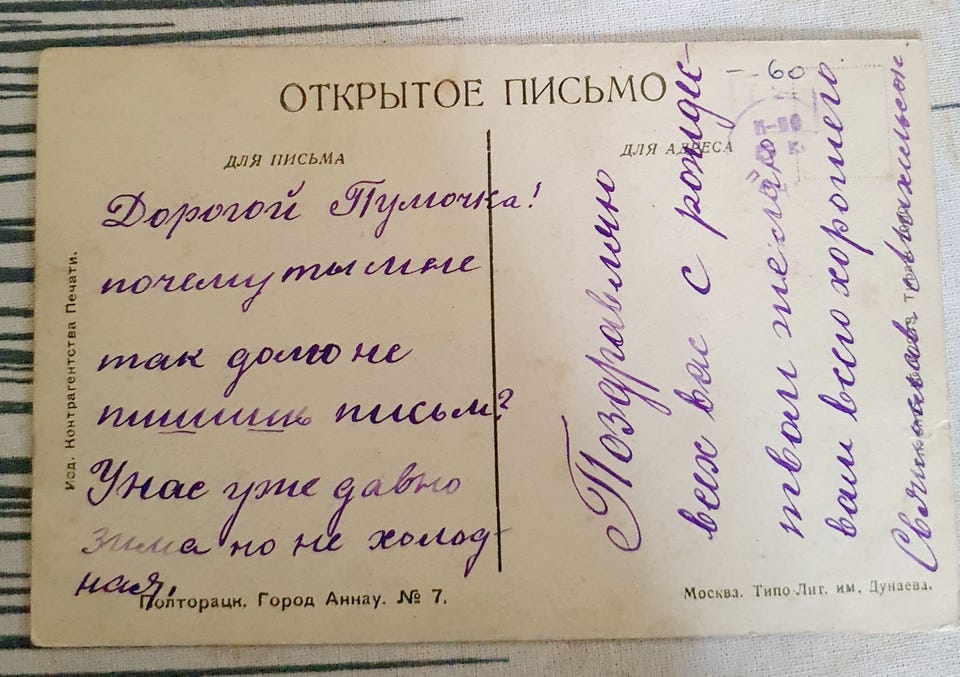 ОТКРЫТОЕ ПИСЬМО
60
ДЛЯ ПИСЬМА
ДЛЯ АДРЕСА
Дорогой Пумочка!
почему ты мне
так долго не
пишишь письм?
У нас уже давно
зима но не холод-
ная.
Поздравляю
всех вас с рожде-
твом желаю
вам всего хорошего
Изд. Контрагентства Печати.
Полторацк. Город Аннау. № 7.
Москва. Типо-Лит. им. Дунаева.